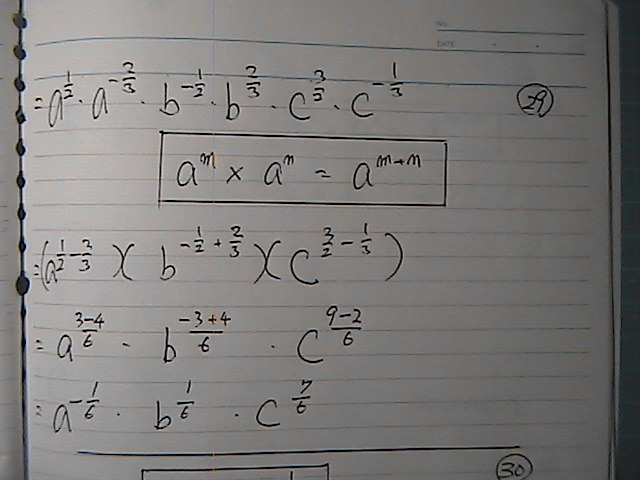 NO.
DATE . .
= a^{1/2} · a^{-2/3} · b^{-1/2} · b^{2/3} · c^{3/2} · c^{-1/3} (29)
a^m × a^n = a^{m+n}
= (a^{1/2 - 2/3})(b^{-1/2 + 2/3})(c^{3/2 - 1/3})
= a^{(3-4)/6} · b^{(-3+4)/6} · c^{(9-2)/6}
= a^{-1/6} · b^{1/6} · c^{7/6}
(30)